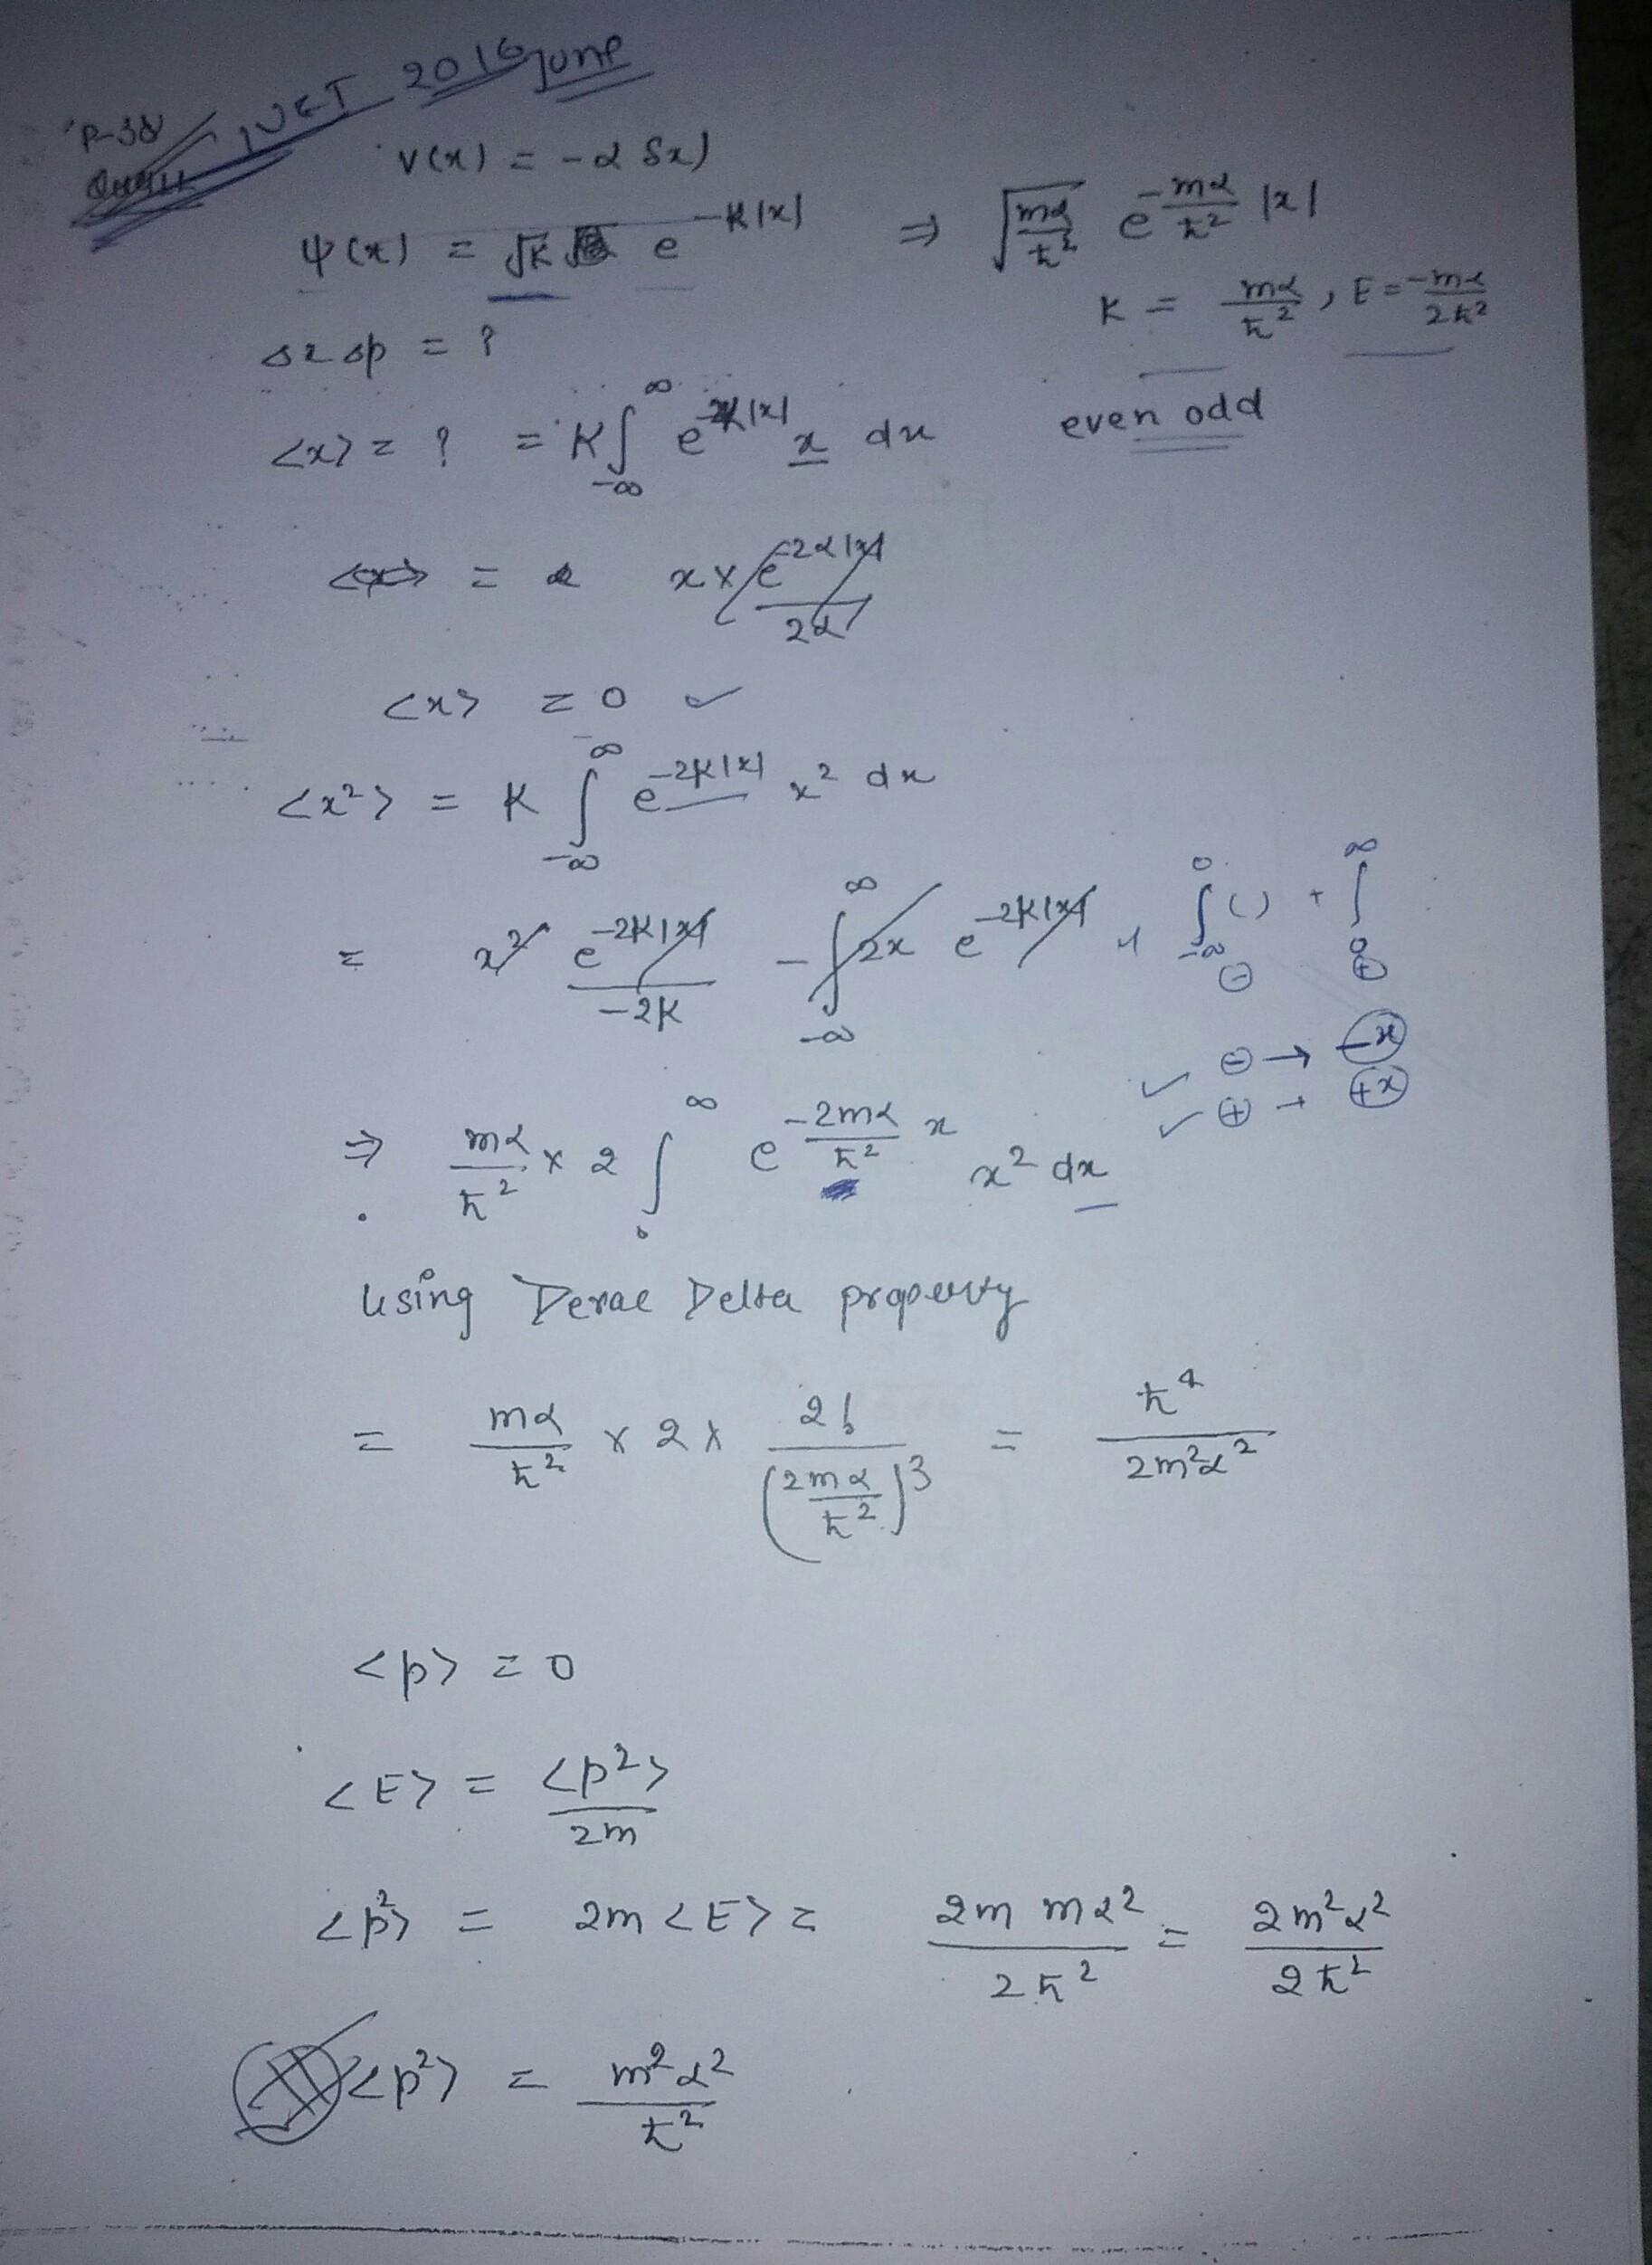 P-38 NET 2016 June
V(x) = -α δx)
ψ(x) = √K e^{-K|x|} ⇒ √(mα/ħ²) e^{-mα/ħ² |x|}
K = mα/ħ² , E = -mα/2ħ²
Δx Δp = ?
<x> = ? = K ∫_{-∞}^{∞} e^{-2K|x|} x dx even odd
<x> = x × e^{-2α|x|}/2α
<x> = 0 ✓
<x²> = K ∫_{-∞}^{∞} e^{-2K|x|} x² dx
= x² e^{-2K|x|}/-2K - ∫_{-∞}^{∞} 2x e^{-2K|x|} ∫_{-∞}^{0} () + ∫_{0}^{∞}
⊖ ⊕
✓ ⊖ → -x
✓ ⊕ → +x
⇒ mα/ħ² × 2 ∫_{0}^{∞} e^{-2mα/ħ² x} x² dx
using Derac Delta property
= mα/ħ² × 2 × 2!/(2mα/ħ²)³ = ħ⁴/2m²α²
<p> = 0
<E> = <p²>/2m
<p²> = 2m <E> = 2m mα²/2ħ² = 2m²α²/2ħ²
<p²> = m²α²/ħ²